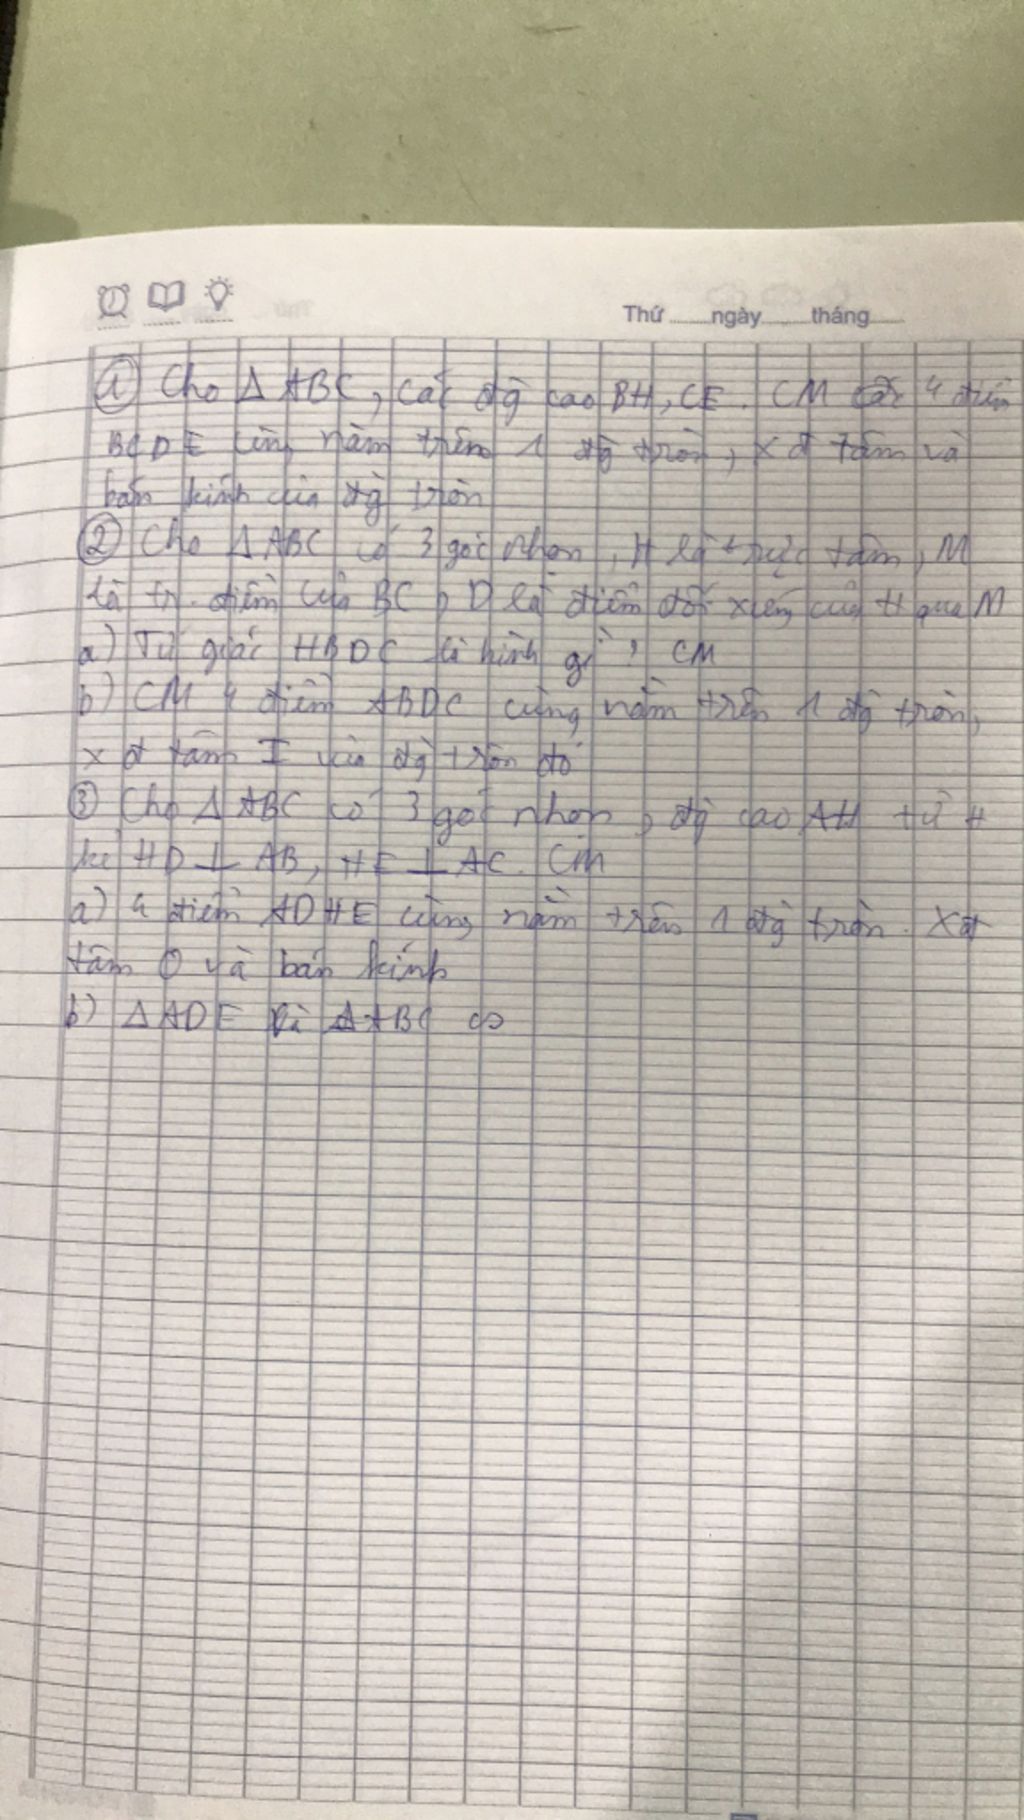 Thứ ........ngày........tháng........
① Cho Δ ABC, các đg cao BH, CE. CM 4 điểm
BCDE cùng nằm trên 1 đg tròn, xđ tâm và
bán kính của đg tròn
② Cho Δ ABC có 3 góc nhọn, H là trực tâm, M
là tr. điểm của BC, D là điểm đối xứng của H qua M
a) Tứ giác HBDC là hình gì? CM
b) CM 4 điểm ABDC cùng nằm trên 1 đg tròn,
xđ tâm I của đg tròn đó
③ Cho Δ ABC có 3 góc nhọn, đg cao AH từ H
kẻ HD ⊥ AB, HE ⊥ AC. CM
a) 4 điểm ADHE cùng nằm trên 1 đg tròn. Xđ
tâm O và bán kính
b) Δ ADE và Δ ABC ∽